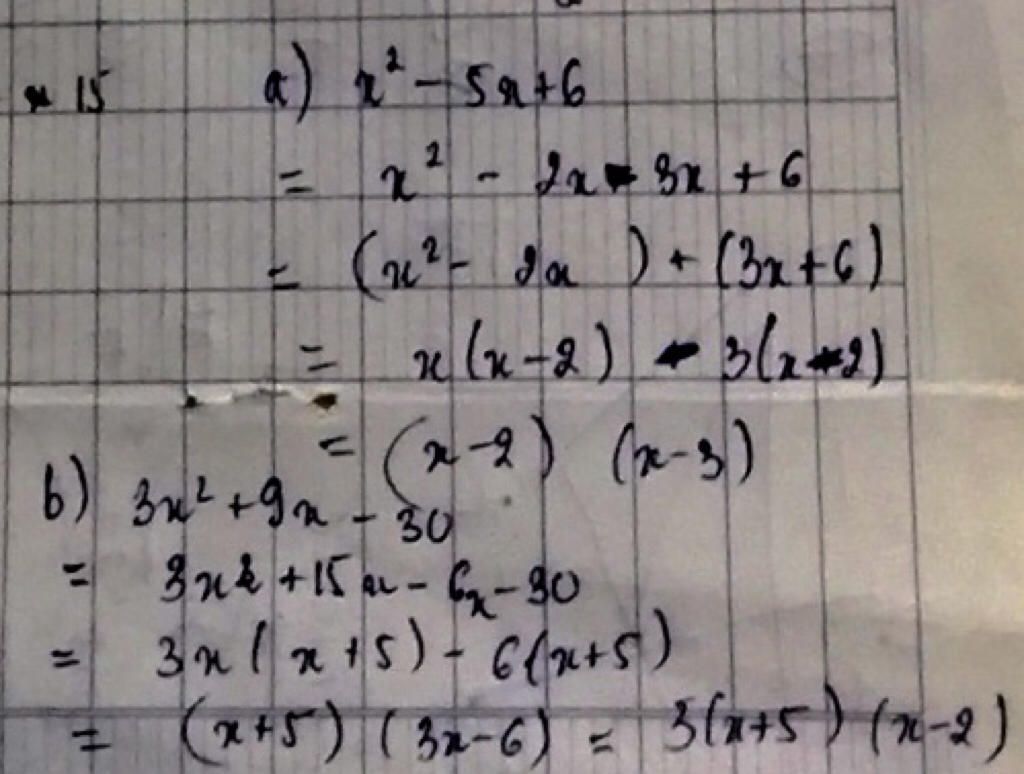 15 a) x² - 5x + 6
= x² - 2x - 3x + 6
= (x² - 2x ) + (3x + 6)
= x (x - 2) - 3(x - 2)
= (x - 2) (x - 3)
b) 3x² + 9x - 30
= 3x² + 15x - 6x - 30
= 3x ( x + 5) - 6(x + 5)
= (x + 5) (3x - 6) = 3(x + 5) (x - 2)